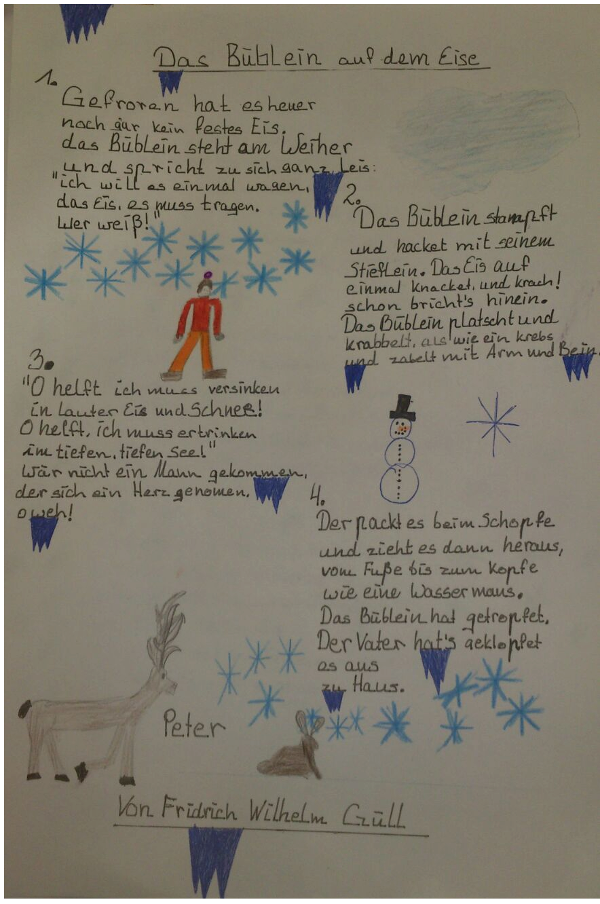 Das Büblein auf dem Eise
1.
Gefroren hat es heuer
noch gar kein festes Eis.
das Büblein steht am Weiher
und spricht zu sich ganz leis:
"ich will es einmal wagen,
das Eis, es muss tragen.
Wer weiß!"
2.
Das Büblein stampft
und hacket mit seinem
Stieflein. Das Eis auf
einmal knacket, und krach!
schon bricht's hinein.
Das Büblein platscht und
krabbelt, als wie ein krebs
und zabelt mit Arm und Bein.
3.
"O helft ich muss versinken
in lauter Eis und Schnee!
O helft, ich muss ertrinken
im tiefen, tiefen See!"
Wär nicht ein Mann gekommen,
der sich ein Herz genomen,
o weh!
4.
Der packt es beim Schopfe
und zieht es dann heraus,
vom Fuße bis zum Kopfe
wie eine Wassermaus.
Das Büblein hat getropfet.
Der Vater hat's geklopfet
es aus
zu Haus.
Peter
Von Fridrich Wilhelm Güll